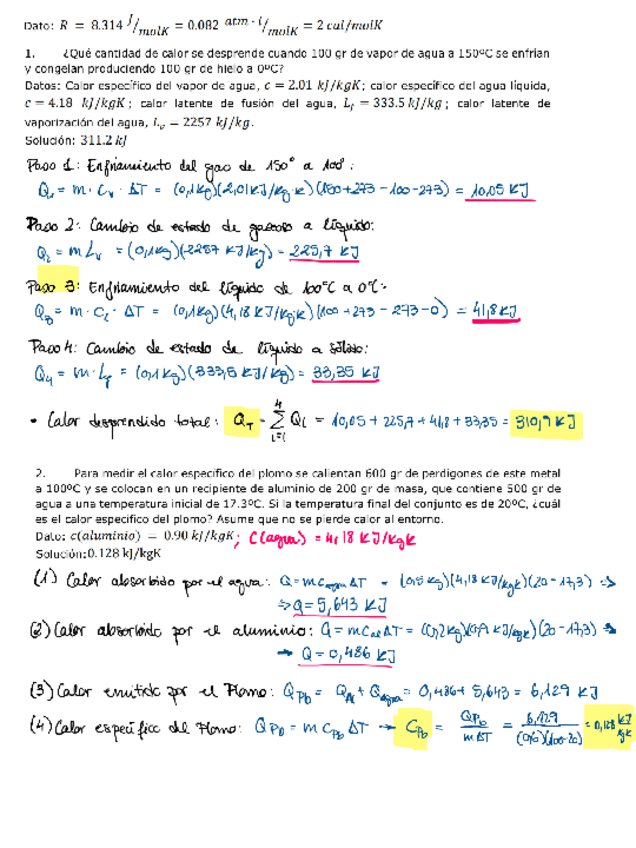 Dato: R = 8.314 J/molK = 0.082 atm·l/molK = 2 cal/molK
1. ¿Qué cantidad de calor se desprende cuando 100 gr de vapor de agua a 150ºC se enfrian
y congelan produciendo 100 gr de hielo a 0ºC?
Datos: Calor específico del vapor de agua, c = 2.01 kJ/kgK; calor específico del agua líquida,
c = 4.18 kJ/kgK; calor latente de fusión del agua, L_f = 333.5 kJ/kg; calor latente de
vaporización del agua, L_v = 2257 kJ/kg.
Solución: 311.2 kJ
Paso 1: Enfriamiento del gas de 150° a 100°:
Q₁ = m · C_v · ΔT = (0,1 kg)(2,01 KJ/kg·K)(150+273-100-273) = 10,05 KJ
Paso 2: Cambio de estado de gaseoso a líquido:
Q₂ = m L_v = (0,1 kg)(2257 KJ/kg) = 225,7 KJ
Paso 3: Enfriamiento del líquido de 100°C a 0°C:
Q₃ = m · C_L · ΔT = (0,1 kg)(4,18 KJ/kg·K)(100+273-273-0) = 41,8 KJ
Paso 4: Cambio de estado de líquido a sólido:
Q₄ = m · L_f = (0,1 kg)(333,5 KJ/kg) = 33,35 KJ
• Calor desprendido total: Q_T = Σ_{i=1}^{4} Q_i = 10,05 + 225,7 + 41,8 + 33,35 = 310,9 KJ
2. Para medir el calor específico del plomo se calientan 600 gr de perdigones de este metal
a 100ºC y se colocan en un recipiente de aluminio de 200 gr de masa, que contiene 500 gr de
agua a una temperatura inicial de 17.3ºC. Si la temperatura final del conjunto es de 20ºC, ¿cuál
es el calor especifico del plomo? Asume que no se pierde calor al entorno.
Dato: c(aluminio) = 0.90 kJ/kgK; C(agua) = 4,18 KJ/kgK
Solución: 0.128 kJ/kgK
(1) Calor absorbido por el agua: Q = m C_agua ΔT = (0,5 kg)(4,18 KJ/kgK)(20-17,3) ⇒
⇒ Q = 5,643 KJ
(2) Calor absorbido por el aluminio: Q = m C_al ΔT = (0,2 kg)(0,9 KJ/kgK)(20-17,3) →
→ Q = 0,486 KJ
(3) Calor emitido por el Plomo: Q_Pb = Q_Al + Q_agua = 0,486 + 5,643 = 6,129 KJ
(4) Calor específico del Plomo: Q_Pb = m C_Pb ΔT → C_Pb = Q_Pb/(m ΔT) = 6,129/((0,6)(100-20)) = 0,128 KJ/kgK